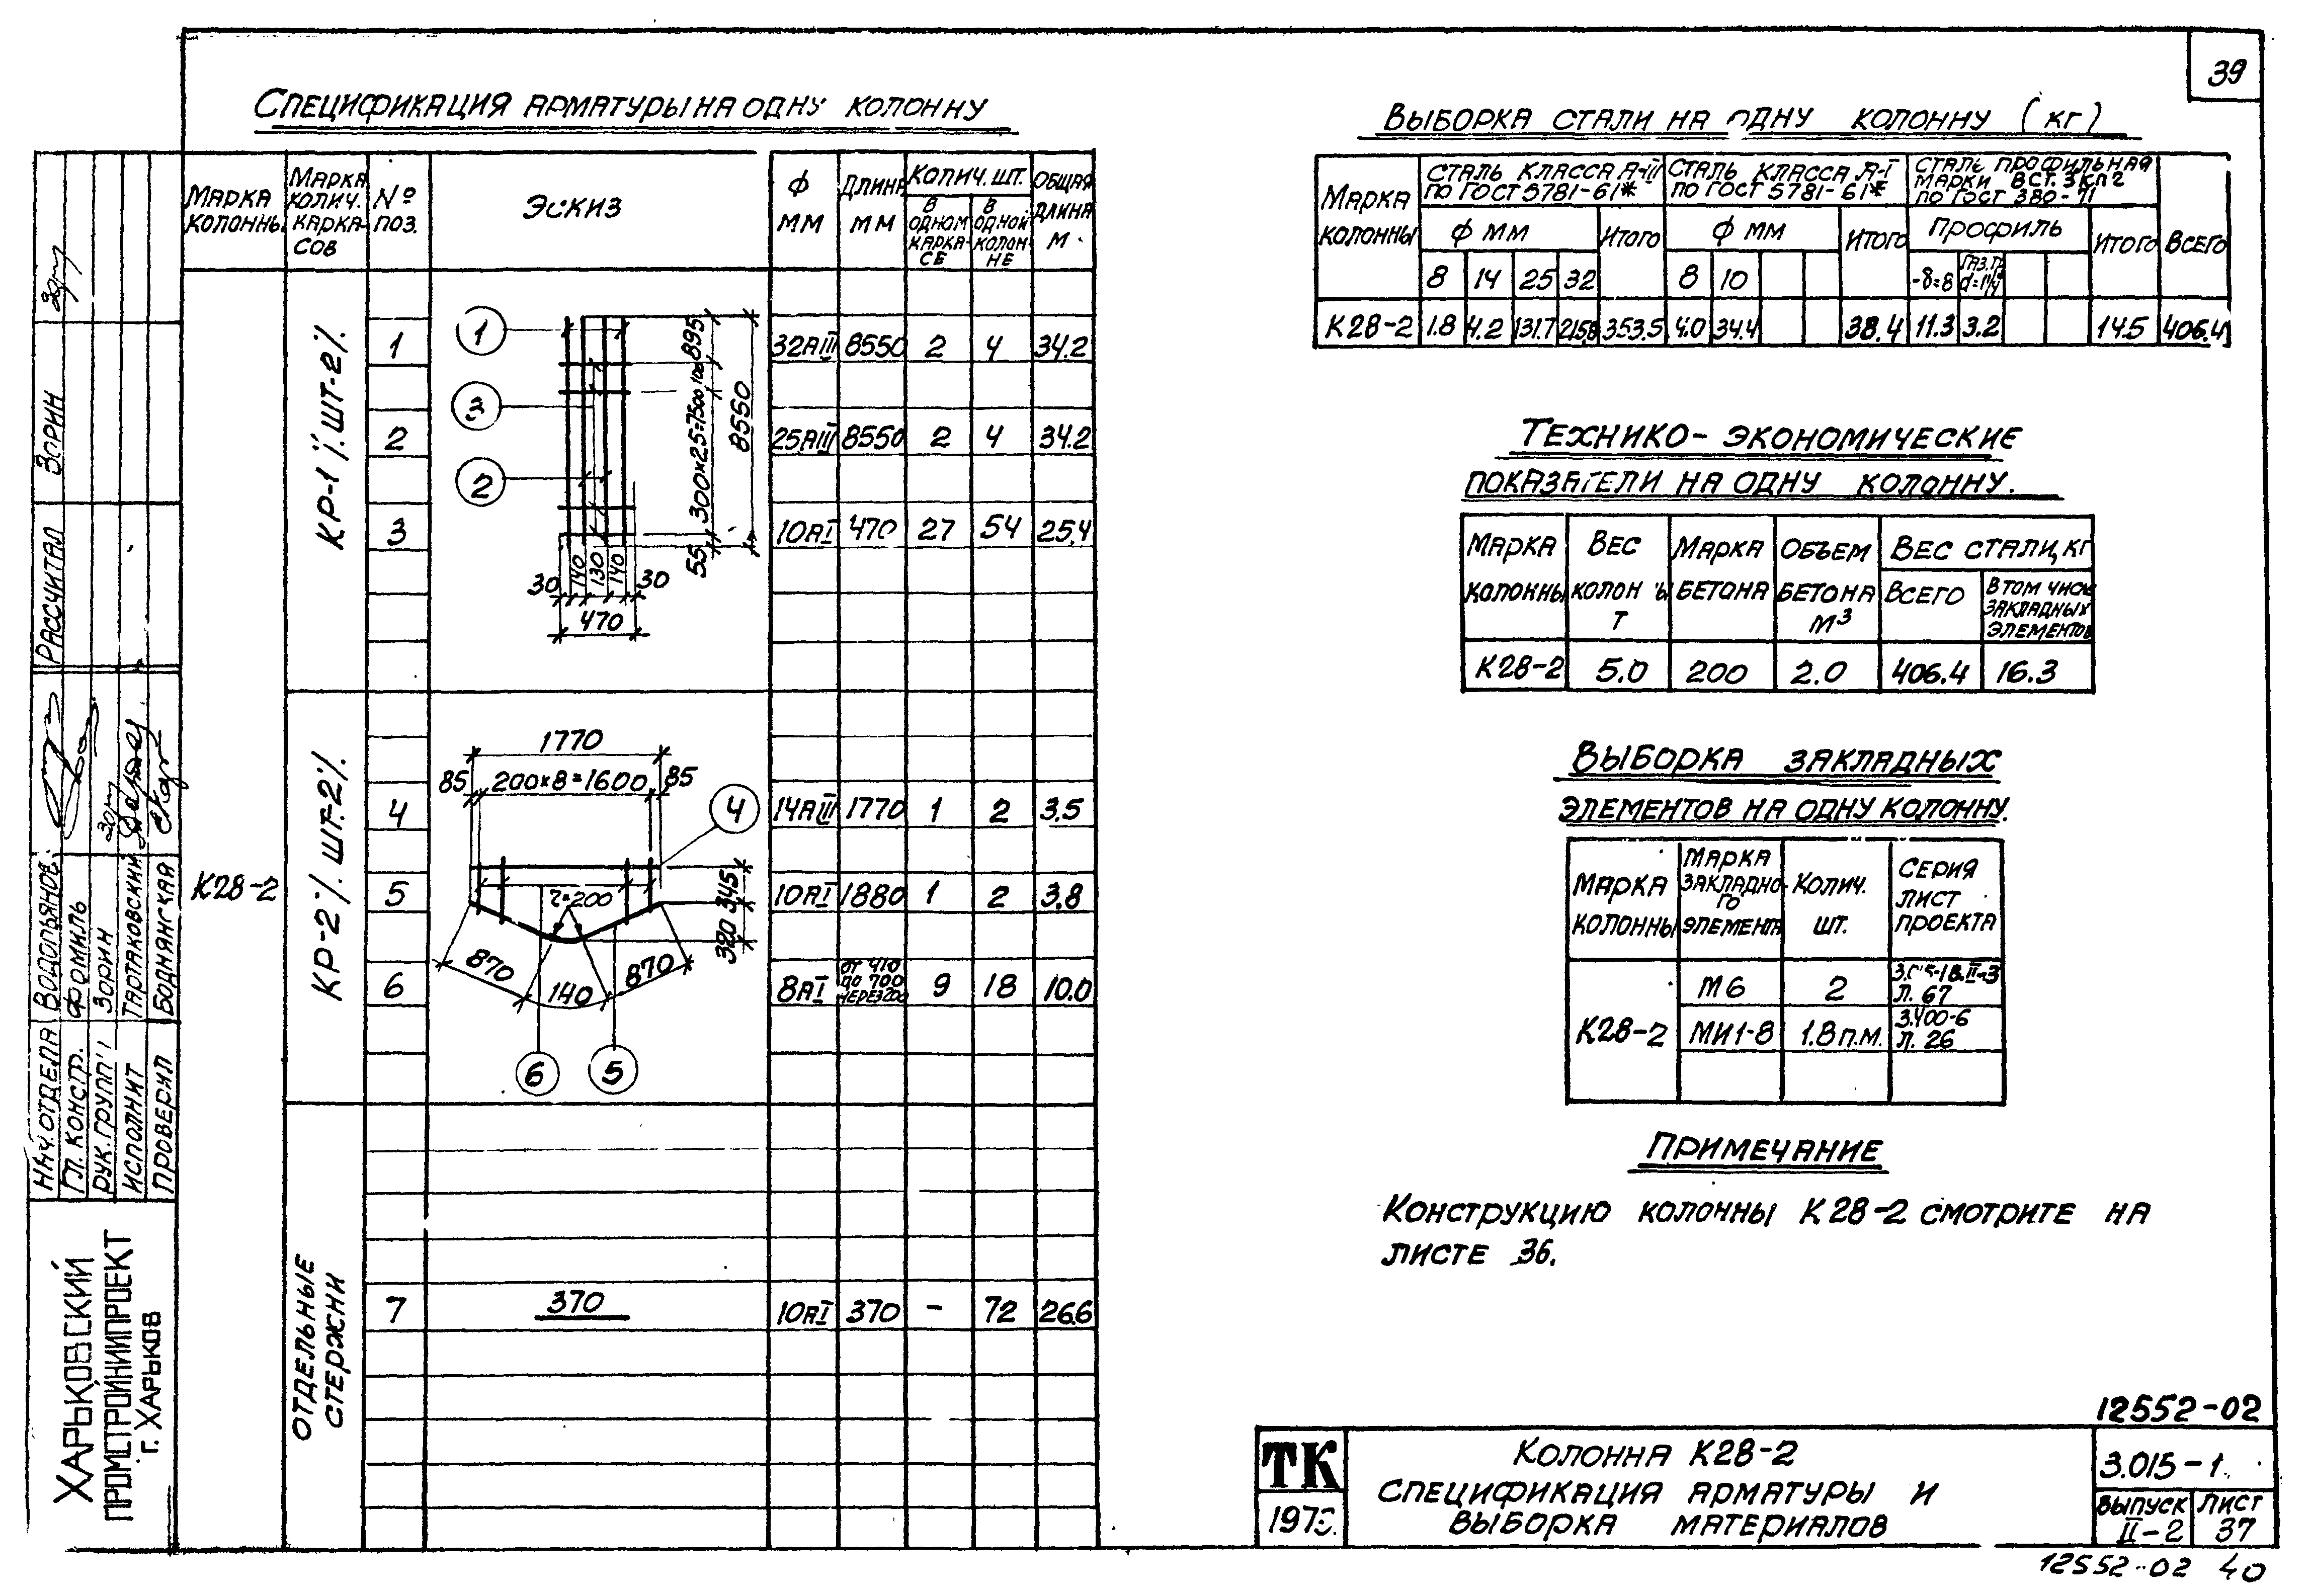 39
Спецификация арматуры на одну колонну
Марка колонны
Марка колич. каркасов
№ поз.
Эскиз
Ф мм
Длина мм
Колич. шт.
в одном каркасе
в одной колонне
Общая длина м
К28-2
КР-1 шт.-2
1 32АIII 8550 2 4 34.2
2 25АIII 8550 2 4 34.2
3 10АI 470 27 54 25.4
1
3
2
895
100
300×25=7500
55
8550
30 140 130 140 30
470
КР-2 шт.-2
4 14АIII 1770 1 2 3.5
5 10АI 1880 1 2 3.8
6 8АI от 410 до 700 через 200 9 18 10.0
1770
85 200×8=1600 85
4
r=200
345
320
870 140 870
6 5
Отдельные стержни
7 370 10АI 370 - 72 26.6
Выборка стали на одну колонну (кг)
Марка колонны
Сталь класса А-III по ГОСТ 5781-61*
Сталь класса А-I по ГОСТ 5781-61*
Сталь профильная марки ВСт.3кп2 по ГОСТ 380-71
Всего
Ф мм Итого Ф мм Итого Профиль Итого
8 14 25 32 8 10 -δ=8 Газ.тр. d=1¼"
К28-2 1.8 4.2 131.7 215.8 353.5 4.0 34.4 38.4 11.3 3.2 14.5 406.4
Технико-экономические
показатели на одну колонну.
Марка колонны
Вес колонны т
Марка бетона
Объем бетона м³
Вес стали, кг
Всего
В том числе закладных элементов
К28-2 5.0 200 2.0 406.4 16.3
Выборка закладных
элементов на одну колонну.
Марка колонны
Марка закладного элемента
Колич. шт.
Серия лист проекта
К28-2
М6 2 л. 67
МИ1-8 1.8 п.м. 3.400-6 л. 26
Примечание
Конструкцию колонны К28-2 смотрите на
листе 36.
12552-02
ТК
197
Колонна К28-2
Спецификация арматуры и
выборка материалов
3.015-1
Выпуск II-2
Лист 37
12552-02 40
Рассчитал Зорин
Нач. отдела Водольянов
Гл. констр. Фомиль
Рук. групп Зорин
Исполнит Тартаковский
Проверил Боднянская
Харьковский
Промстройниипроект
г. Харьков